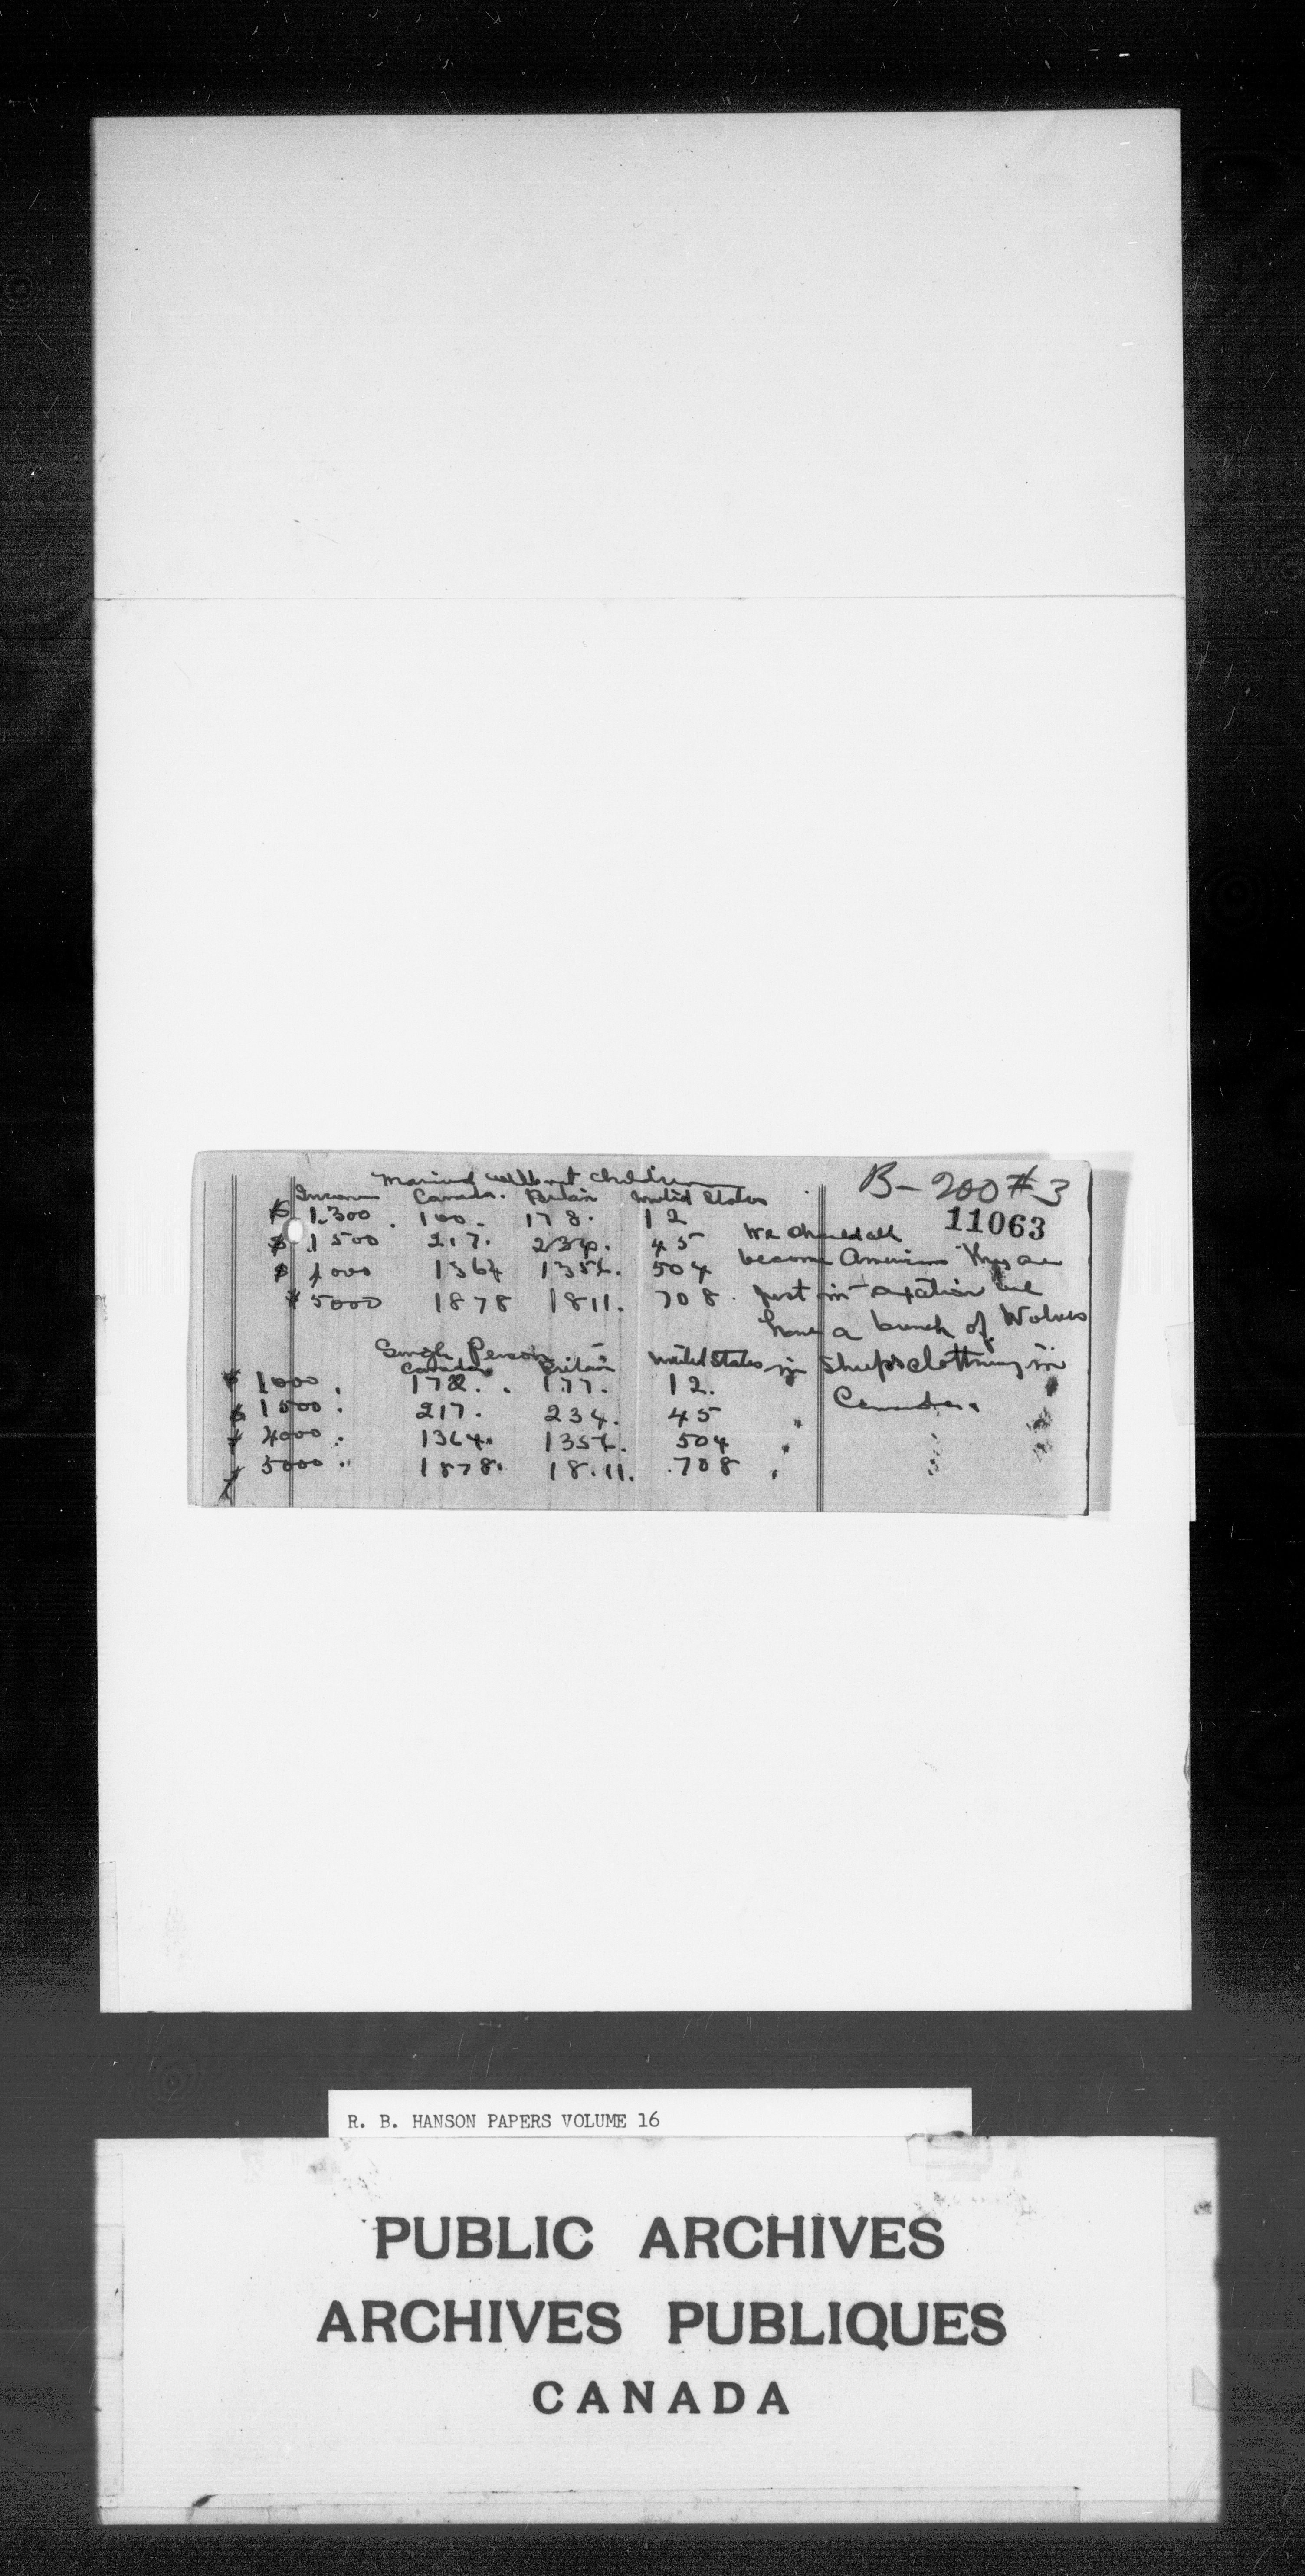 B-200 #3
11063
Married without children
Income Canada. Britain United States
$ 1.300 . 100. 178. 12
$ 1500 217. 234. 45
$ 4000 1364 1352. 504
$ 5000 1878 1811. 708.
We should all
become Americans they are
just in taxation we
have a bunch of Wolves
in sheeps clothning in
Canada.
Single Person
Canada Britain United States
$ 1000 . 172. . 177. 12.
$ 1500 . 217. 234. 45
$ 4000 . 1364. 1352. 504
$ 5000 " 1878. 18.11. .708
R. B. HANSON PAPERS VOLUME 16
PUBLIC ARCHIVES
ARCHIVES PUBLIQUES
CANADA